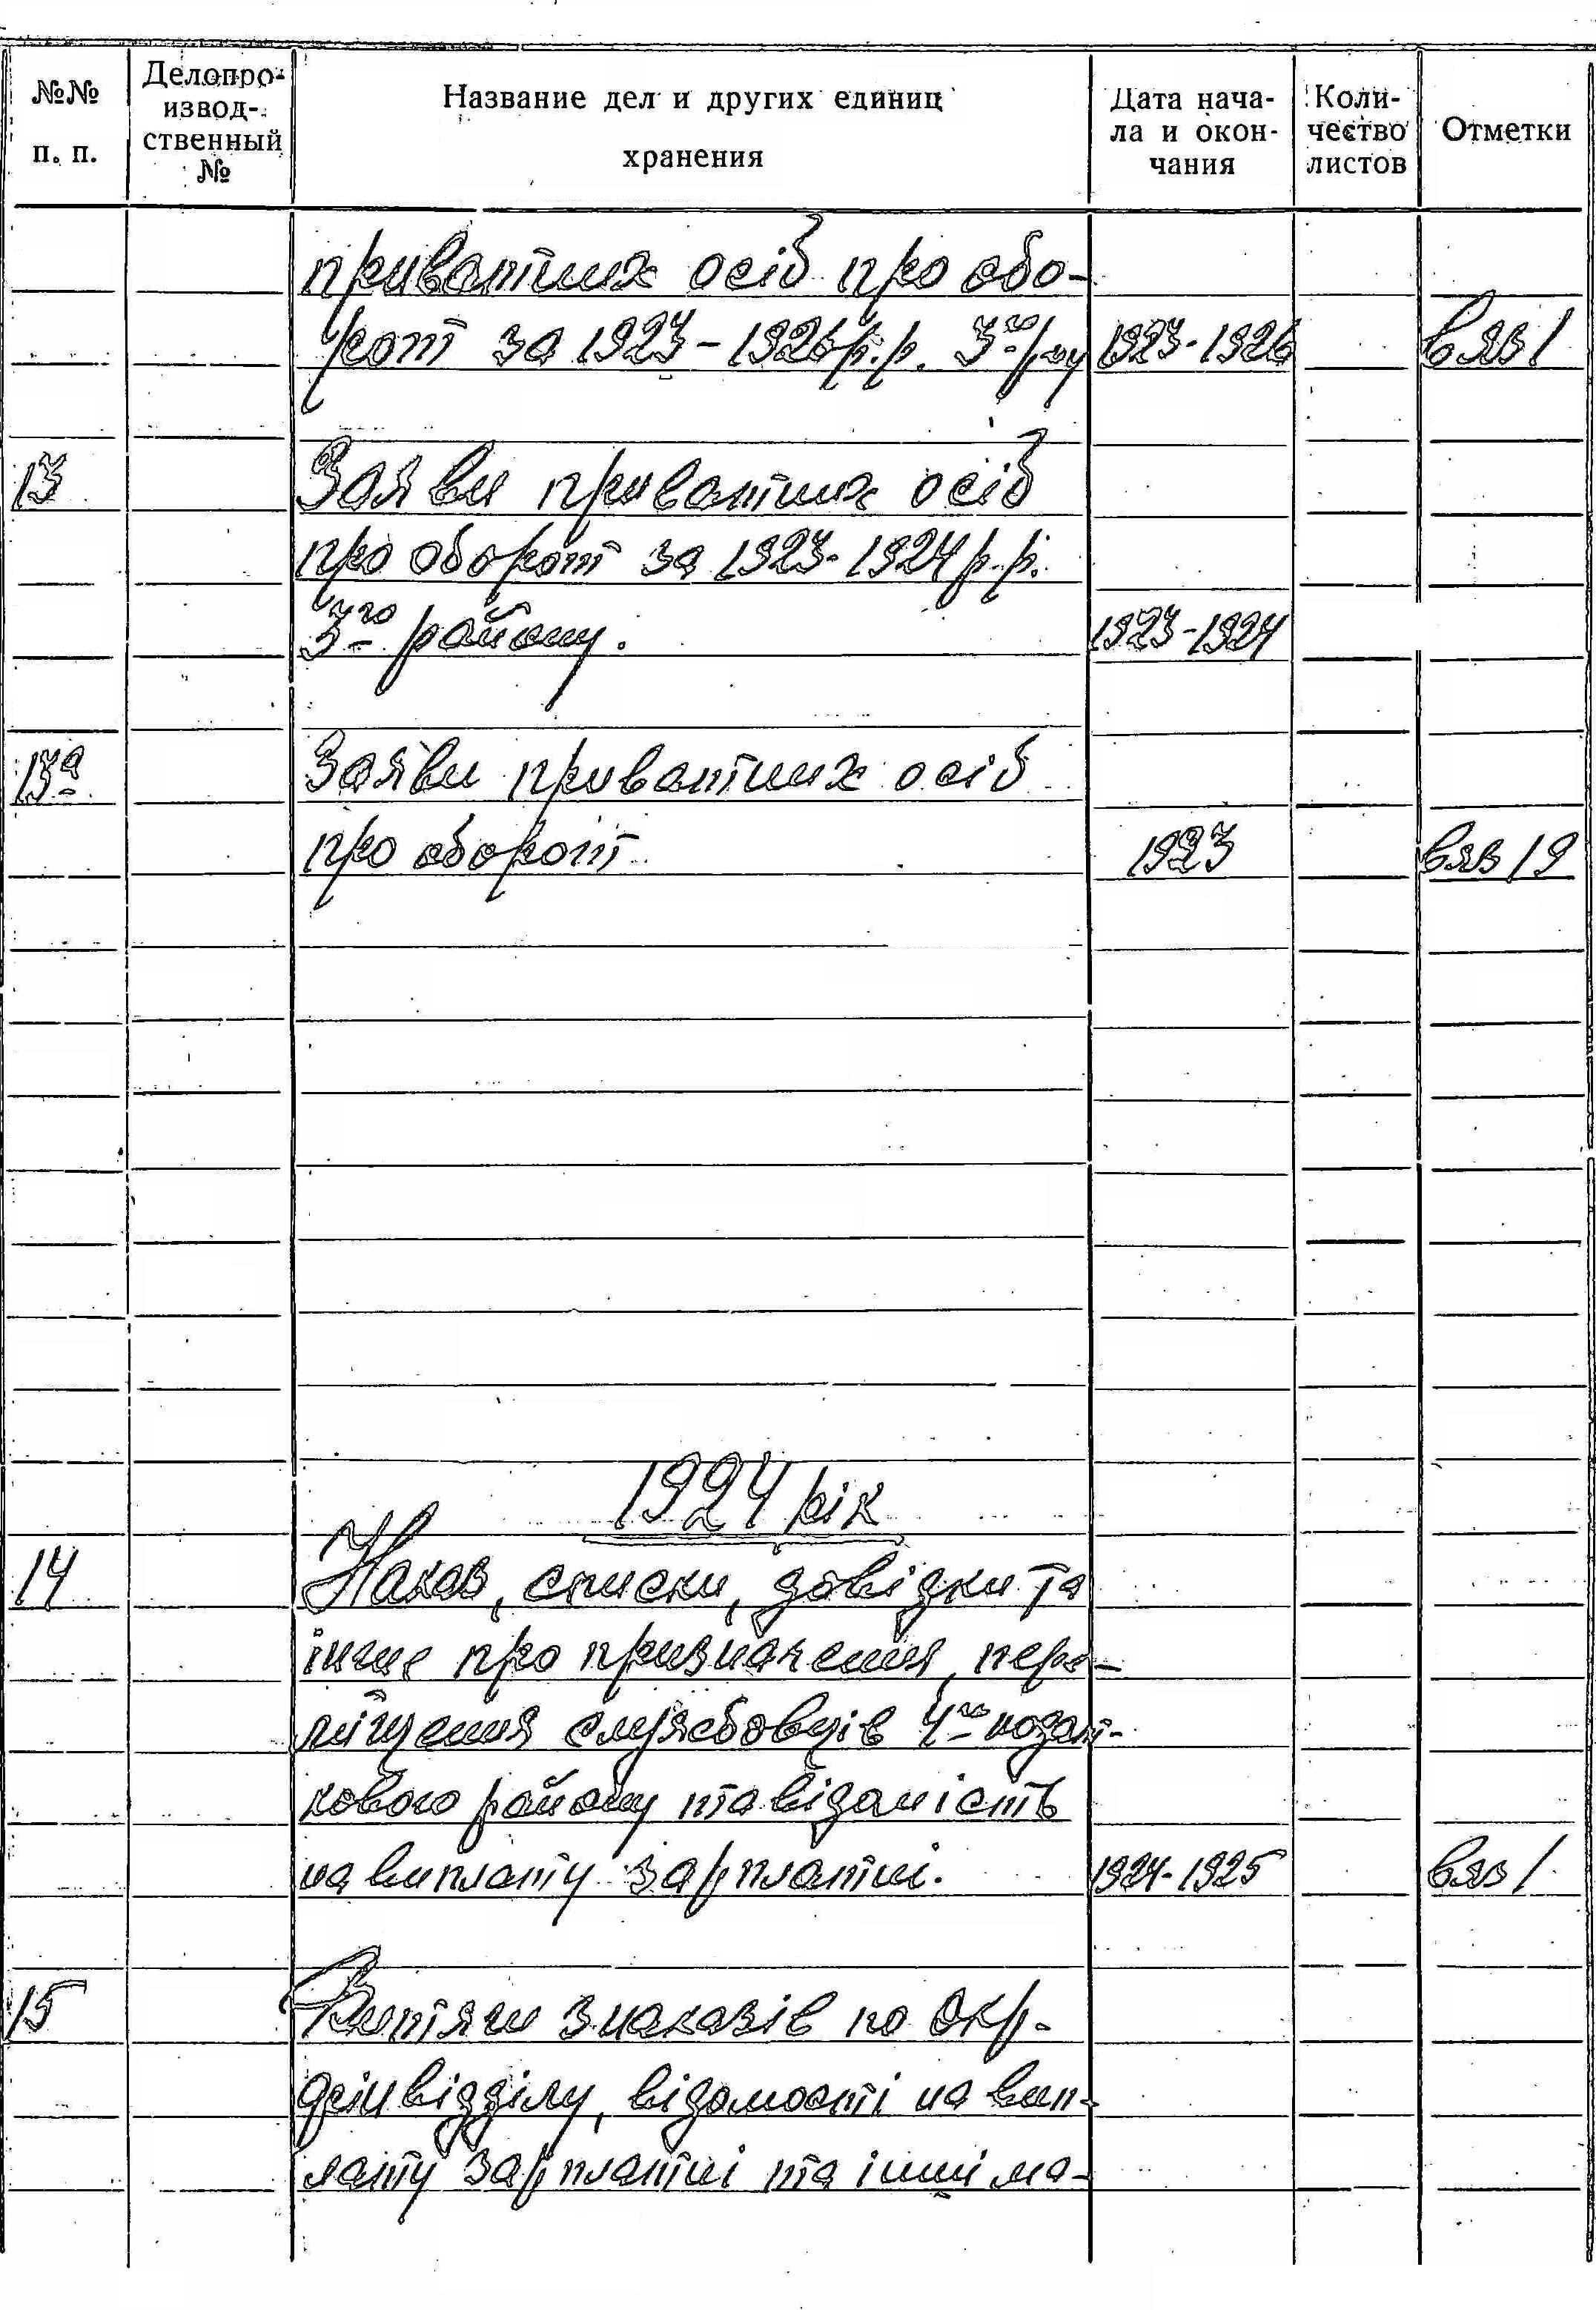 №№ п. п. Делопро-извод-ственный № Название дел и других единиц хранения Дата нача-ла и окон-чания Коли-чество листов Отметки
приватних осіб про обо-
рот за 1923-1926 р.р. 3го р-ну 1923-1926 вяз 1
13 Заяви приватних осіб
про оборот за 1923-1924 р.р.
3го району. 1923-1924
13а Заяви приватних осіб
про оборот 1923 вяз 19
1924 рік
14 Наказ, списки, довідки та
інше про призначення, пере-
міщення службовців 4го подат-
кового району та відомість
на виплату зарплатні. 1924-1925 вяз 1
15 Витяги з наказів по Окр-
фінвідділу, відомості на вип-
лату зарплатні та інші ма-